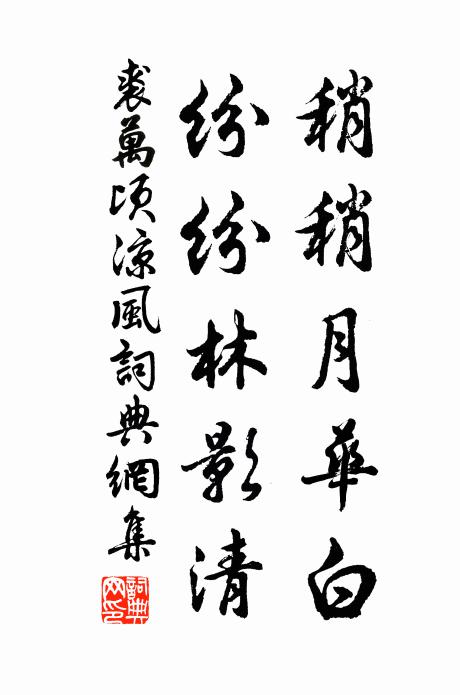 稍稍月華白
紛紛林影清
裘萬頃涼風詞典網集
詞典
网印